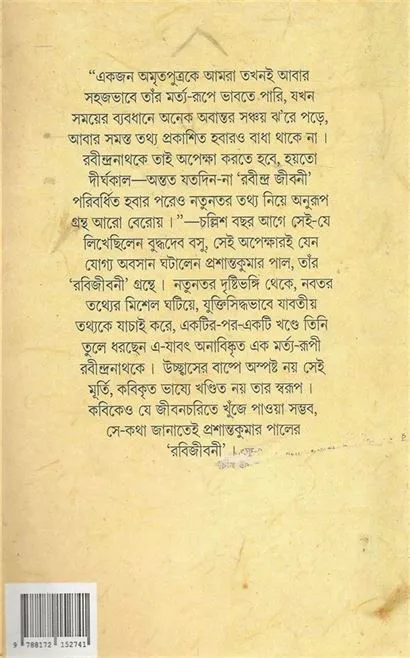 “একজন অমৃতপুত্রকে আমরা তখনই আবার
সহজভাবে তাঁর মর্ত্য-রূপে ভাবতে পারি, যখন
সময়ের ব্যবধানে অনেক অবান্তর সঞ্চয় ঝ’রে পড়ে,
আবার সমস্ত তথ্য প্রকাশিত হবারও বাধা থাকে না ।
রবীন্দ্রনাথকে তাই অপেক্ষা করতে হবে, হয়তো
দীর্ঘকাল—অন্তত যতদিন-না ‘রবীন্দ্র জীবনী’
পরিবর্ধিত হবার পরেও নতুনতর তথ্য নিয়ে অনুরূপ
গ্রন্থ আরো বেরোয় । ”—চল্লিশ বছর আগে সেই-যে
লিখেছিলেন বুদ্ধদেব বসু, সেই অপেক্ষারই যেন
যোগ্য অবসান ঘটালেন প্রশান্তকুমার পাল, তাঁর
‘রবিজীবনী’ গ্রন্থে । নতুনতর দৃষ্টিভঙ্গি থেকে, নবতর
তথ্যের মিশেল ঘটিয়ে, যুক্তিসিদ্ধভাবে যাবতীয়
তথ্যকে যাচাই করে, একটির-পর-একটি খণ্ডে তিনি
তুলে ধরছেন এ-যাবৎ অনাবিষ্কৃত এক মর্ত্য-রূপী
রবীন্দ্রনাথকে । উচ্ছ্বাসের বাষ্পে অস্পষ্ট নয় সেই
মূর্তি, কবিকৃত ভাষ্যে খণ্ডিত নয় তার স্বরূপ ।
কবিকেও যে জীবনচরিতে খুঁজে পাওয়া সম্ভব,
সে-কথা জানাতেই প্রশান্তকুমার পালের
‘রবিজীবনী’ ।
9 788172 152741